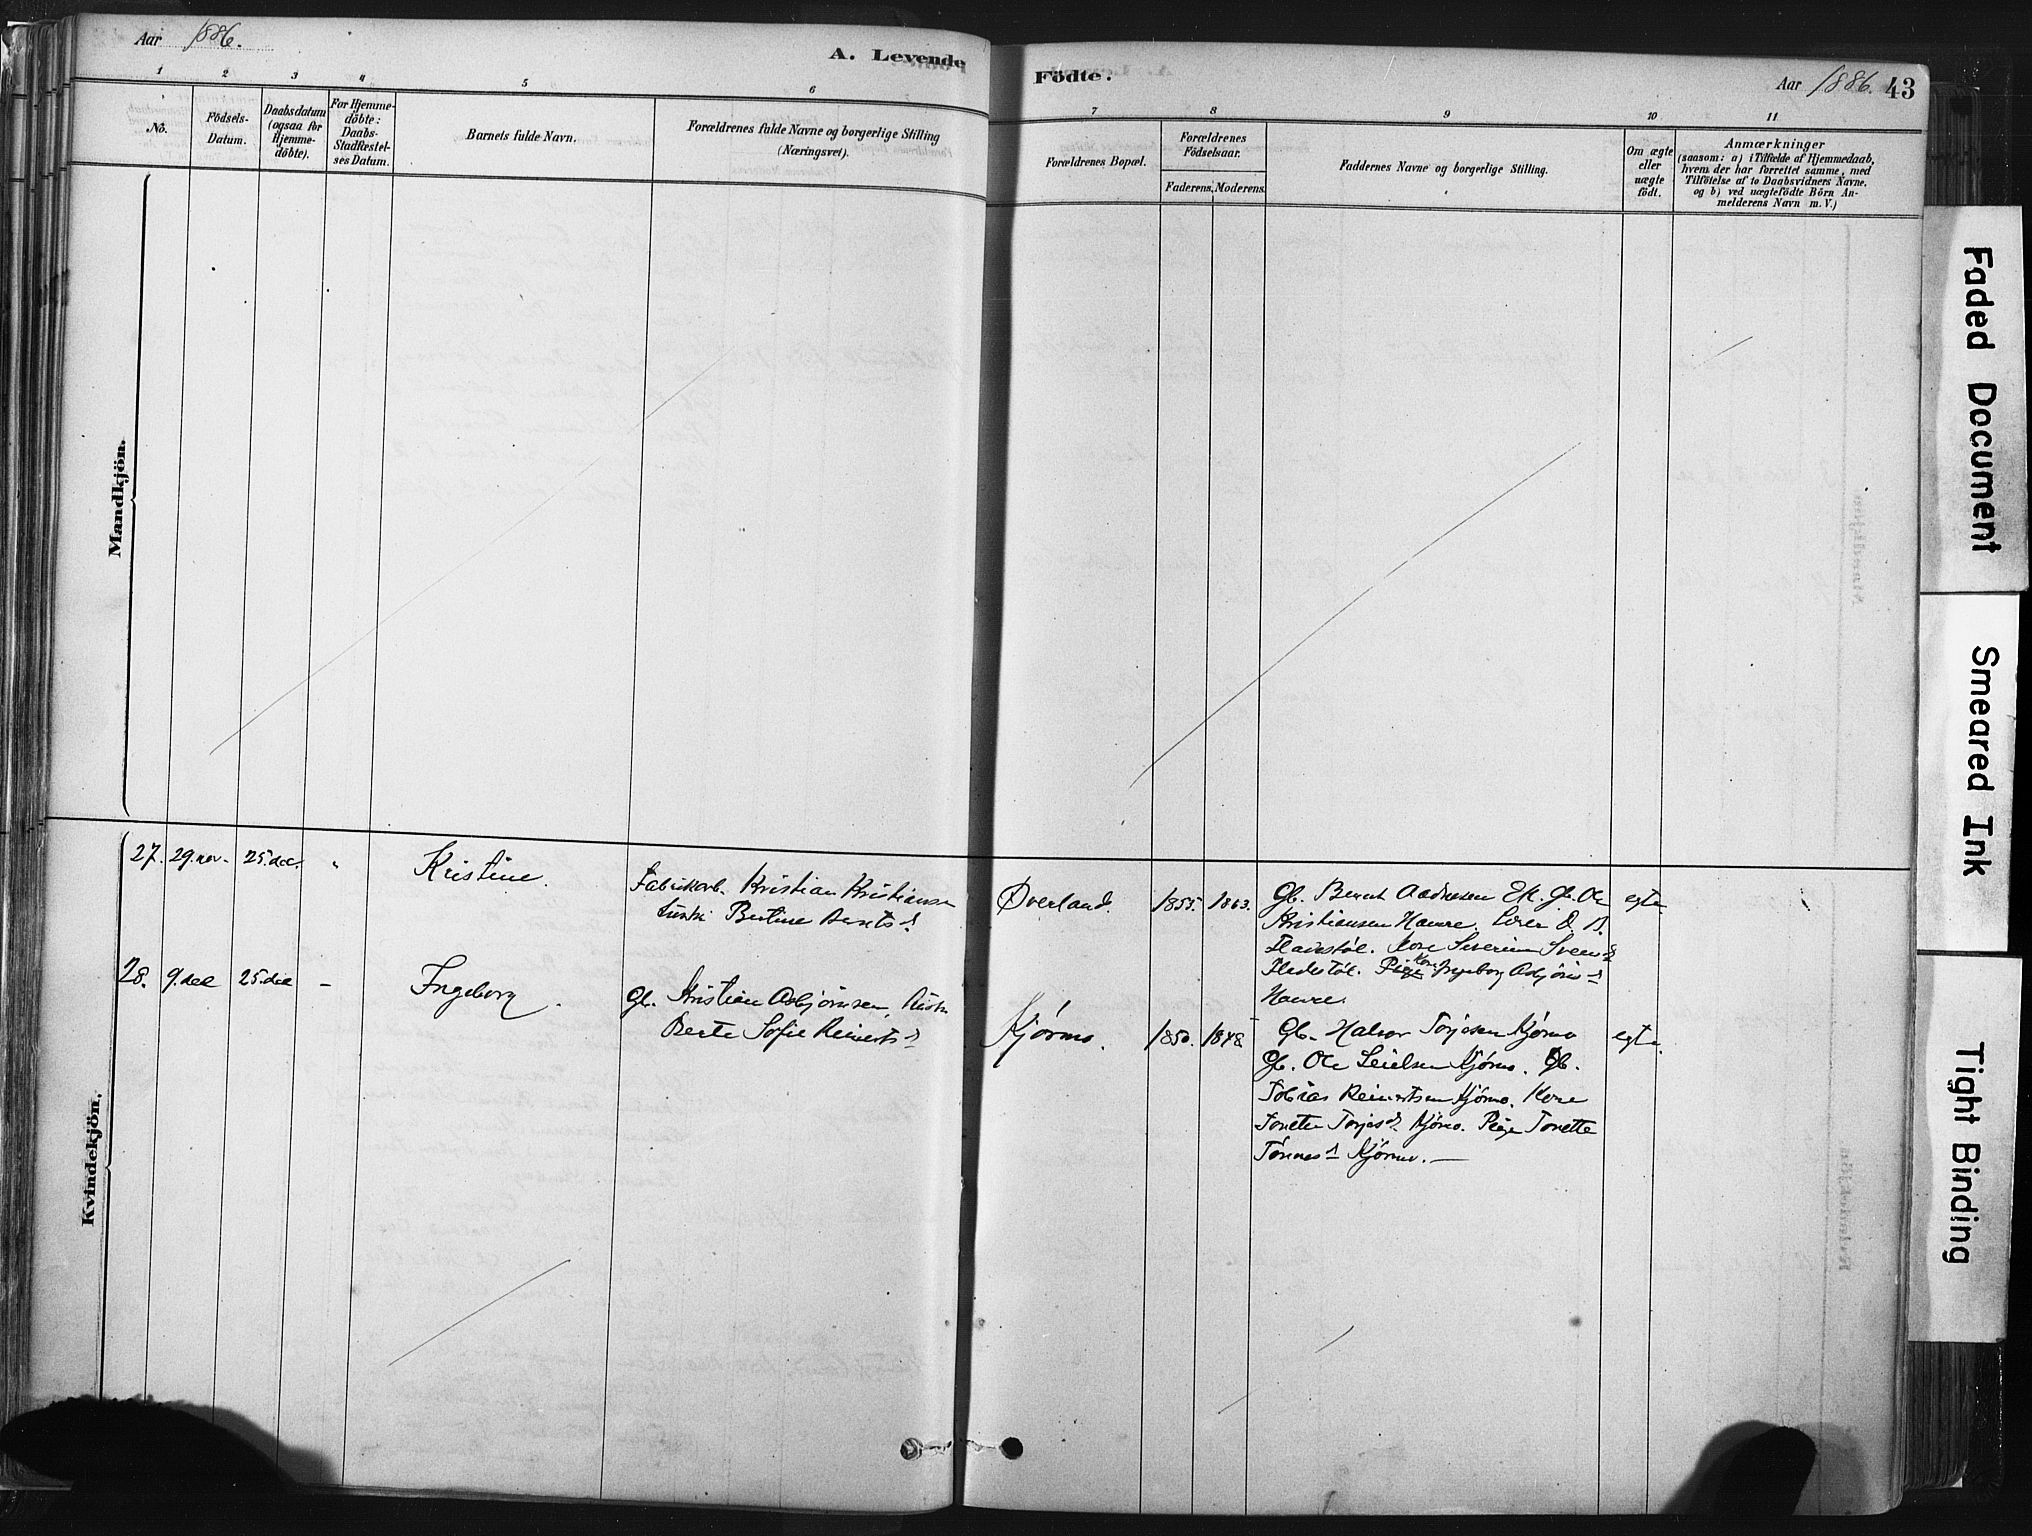 Aar 1886.
A. Levende
Födte.
Aar 1886. 43
1 2 3 4 5 6 7 8 9 10 11
No.
Födsels-
Datum.
Daabsdatum
(ogsaa for
Hjemme-
döbte).
For Hjemme-
döbte:
Daabs-
Stadfæstel-
ses Datum.
Barnets fulde Navn.
Forældrenes fulde Navne og borgerlige Stilling
(Næringsvei).
Forældrenes Bopæl.
Forældrenes
Födselsaar.
Faderens. Moderens.
Faddernes Navne og borgerlige Stilling.
Om ægte
eller
uægte
födt.
Anmærkninger
(saasom: a) i Tilfælde af Hjemmedaab,
hvem der har forrettet samme, med
Tilföielse af to Daabsvidners Navne,
og b) ved uægtefödte Börn An-
melderens Navn m. V.)
Mandkjön.
Kvindekjön.
27. 29. nov. 25. dec. "
Kristine.
Fabrikarb. Kristian Kristiansen
Bertine
Øverland. 1855. 1863.
Gb. Bernt Ek. Gb. Ole
Kristiansen Haure.
Kone Severine
Fladestøl. Pige Ingeborg
Haure.
egte.
28. 9. dec 25. dec –
Ingeborg.
Gb. Kristian Asbjørnsen,
Berte Sofie Reinertsd
Kjørmo. 1850. 1848
Gb. Halvor Torjesen Kjørmo
Gb. Ole Kjørmo. Gb.
Tobias Reinertsen Kjørmo. Kone
Tonette Torjesd. Kjørmo. Pige Tonette
Tønnesd Kjørmo. —
egte.
Faded Document
Smeared Ink
Tight Binding